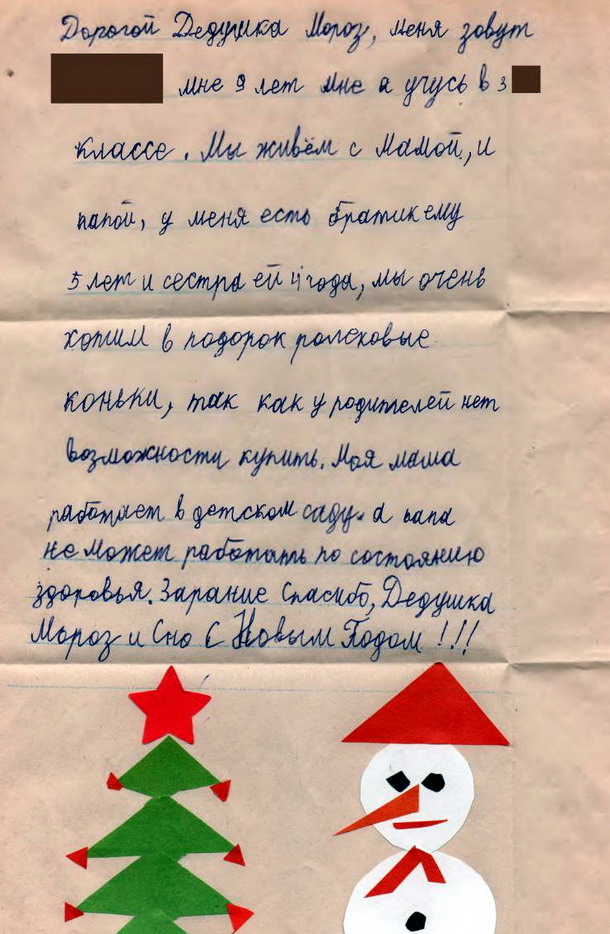 Дорогой Дедушка Мороз, меня зовут
мне 9 лет мне а учусь в 3
классе. Мы живём с Мамой, и
папой, у меня есть братик ему
5 лет и сестра ей 4 года, мы очень
хотим в подорок ролековые
коньки, так как у родителей нет
возможности купить. Моя мама
работает в детском саду. а папа
не может работать по состоянию
здоровья. Зарание Спасибо, Дедушка
Мороз и Сно С Новым Годом !!!